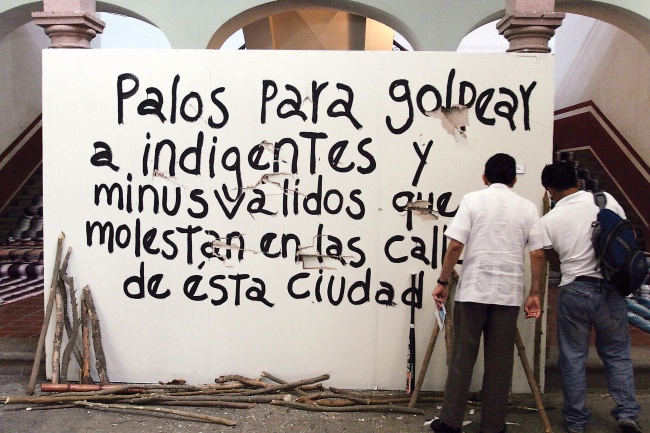 Palos para golpear
a indigentes y
minusvalidos que
molestan en las
de ésta ciudad